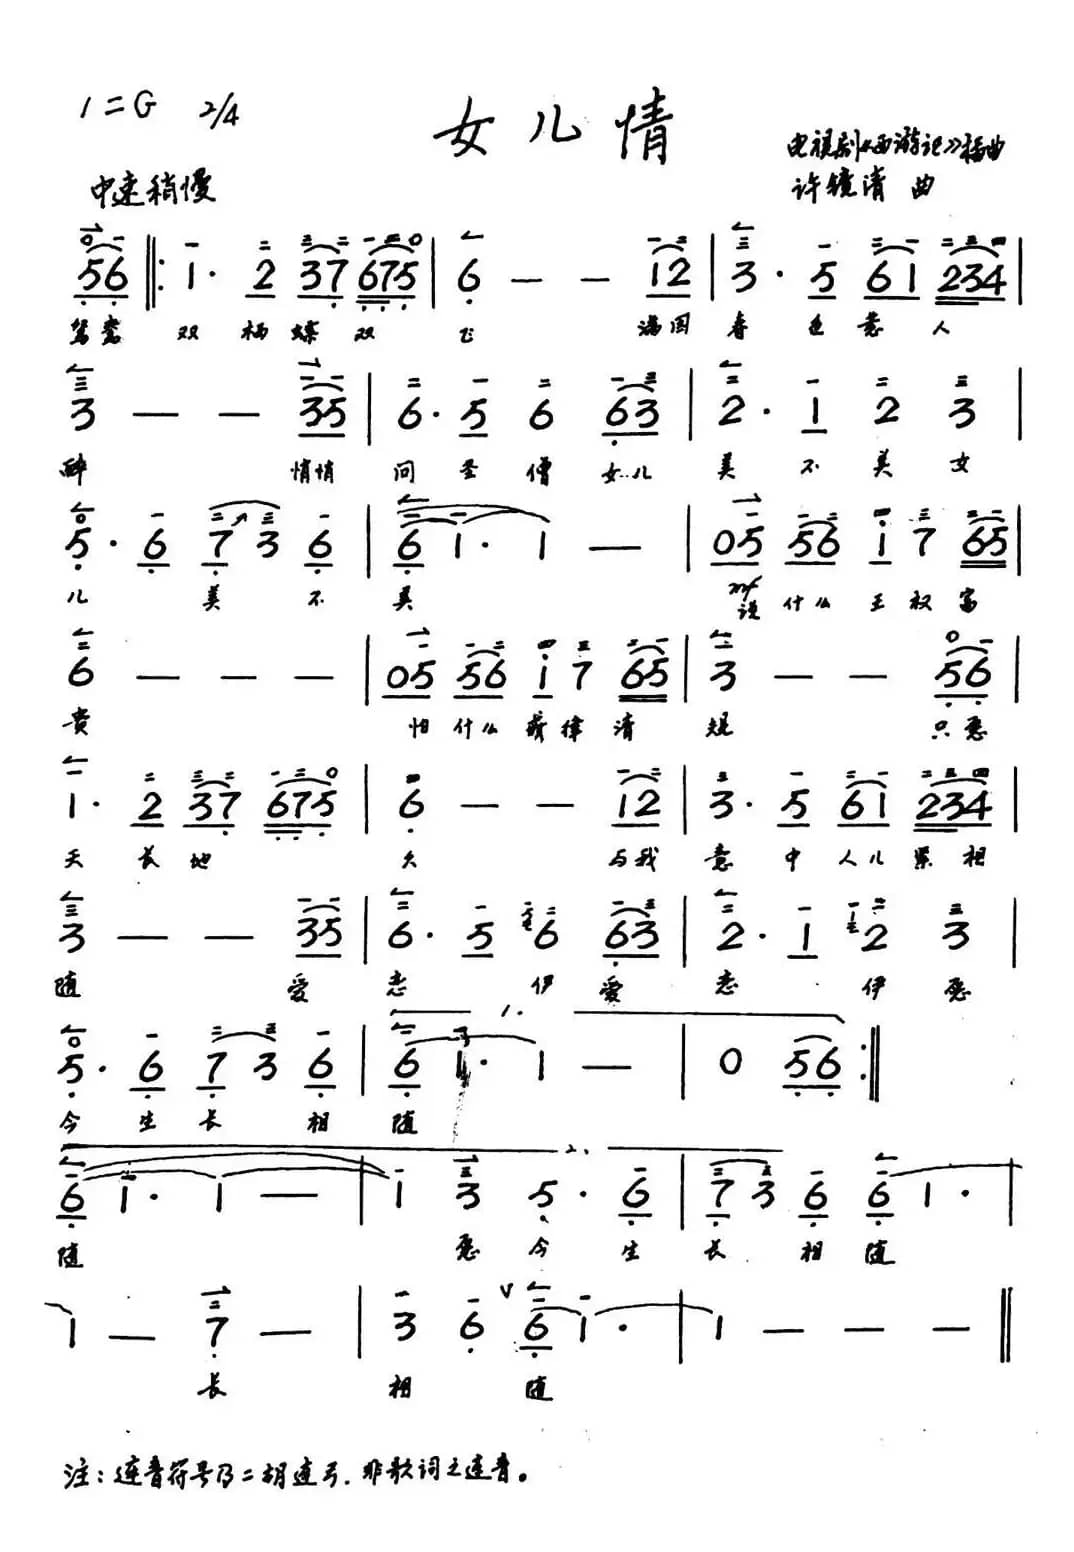 1=G 2/4
女儿情
电视剧《西游记》插曲
中速稍慢
许镜清 曲
56 ‖: 1· 2 37 675 | 6 — — 12 | 3· 5 61 234 |
鸳鸯 双栖蝶双 飞 满园 春色惹人
3 — — 35 | 6· 5 6 63 | 2· 1 2 3
醉 悄悄 问圣僧 女儿 美不美女
5· 6 7 3 6 | 6 1· 1 — | 05 56 i 7 65
儿 美不 美 mf 说什么王权富
6 — — — | 05 56 i 7 65 | 3 — — 56 |
贵 怕什么戒律清 规 只愿
1· 2 37 675 | 6 — — 12 | 3· 5 61 234 |
天长地 久 与我 意中人儿紧相
3 — — 35 | 6· 5 6 63 | 2· 1 2 3 |
随 爱 恋 伊 爱 恋 伊 愿
1.
5· 6 7 3 6 | 6 1· 1 — | 0 56 :‖
今生长 相 随
2.
6 1· 1 — | 1 3 5· 6 | 7 3 6 6 1· |
随 愿今生 长 相随
1 — 7 — | 3 6 V 6 1· | 1 — — — ‖
长 相 随
注：连音符号乃二胡连弓，非歌词之连音。